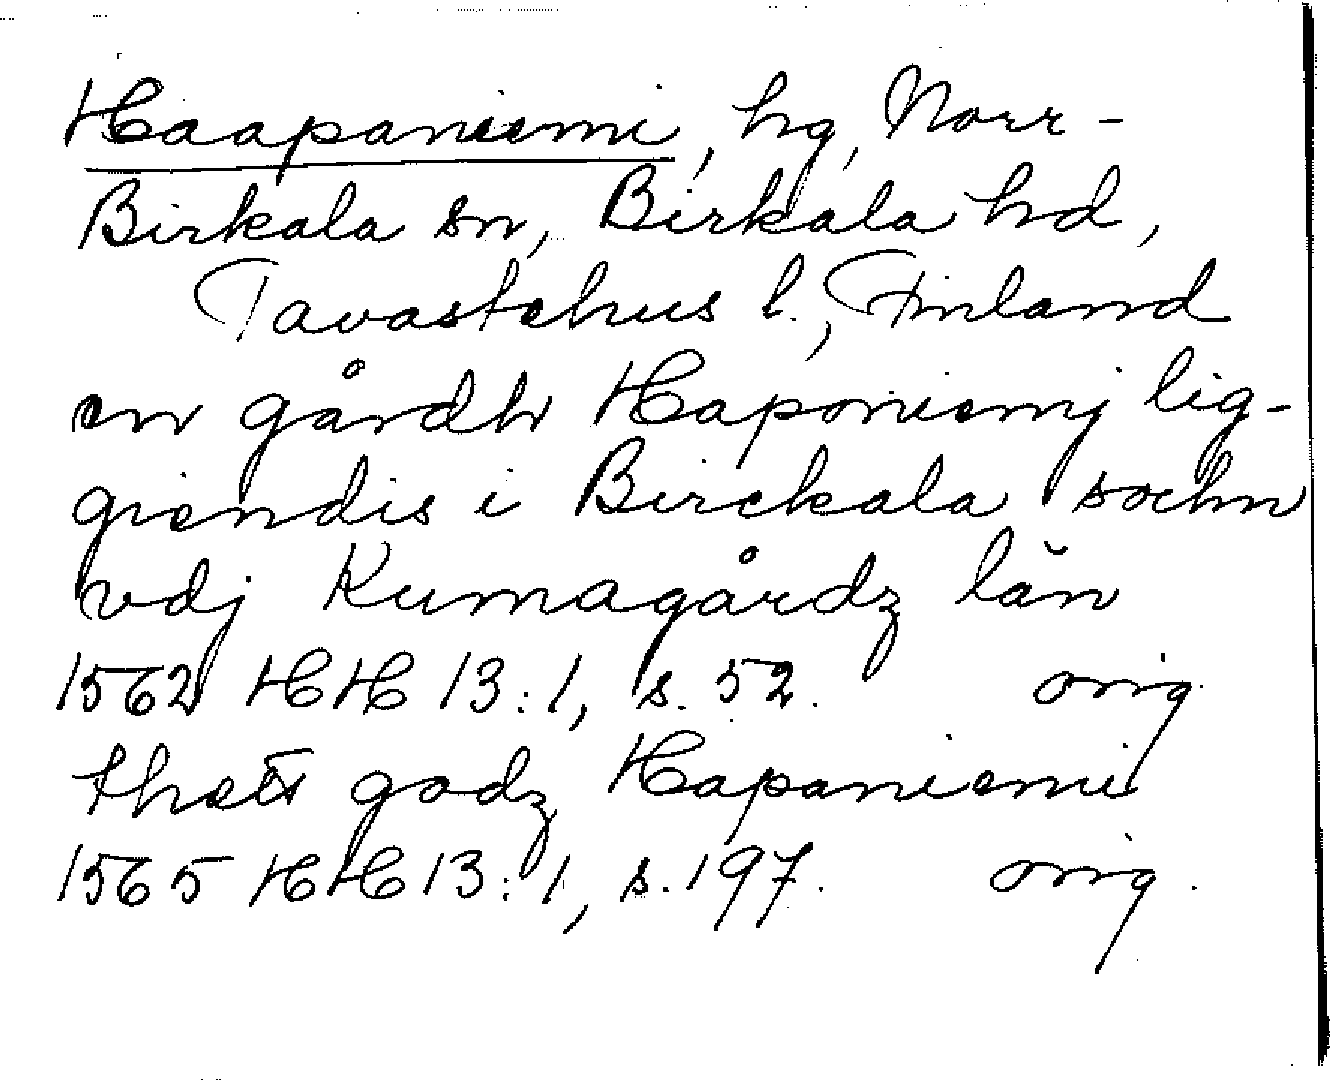 Haapaniemi, hg, Norr-
Birkala sn, Birkala hd,
Tavastehus l., Finland
en gårdh Haponiemj lig-
giendis i Birckala sochn
vdj Kumagårdz län
1562 HH 13:1, s. 52. orig.
thett godz Hapaniemi
1565 HH 13:1, s. 197. orig.